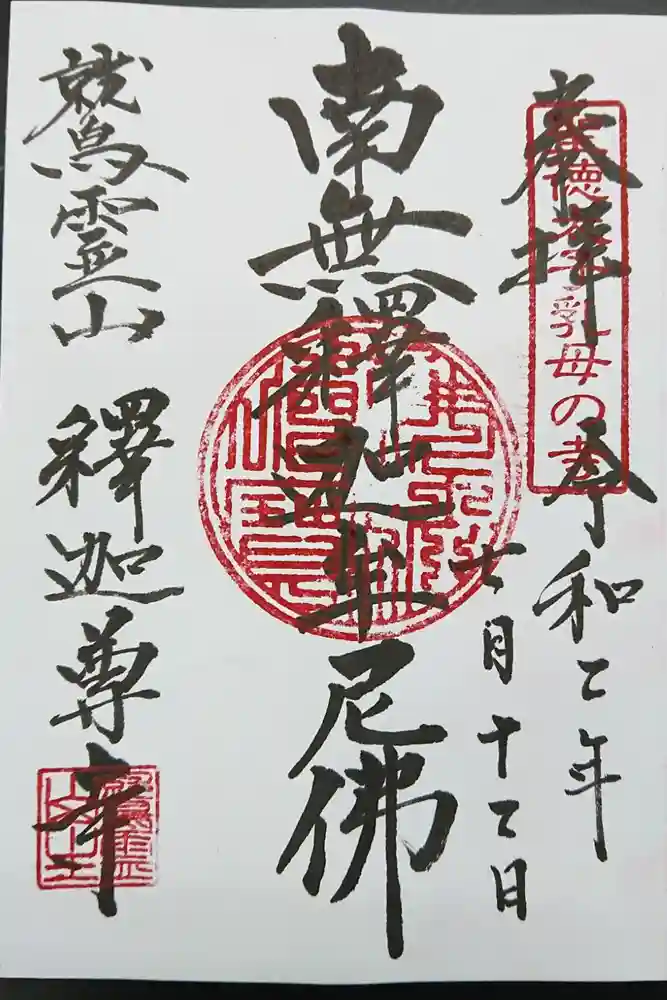 奉拝
聖徳太子乳母の寺
令和二年
七月十二日
南無釋迦牟尼佛
鷲霊山 釋迦尊寺